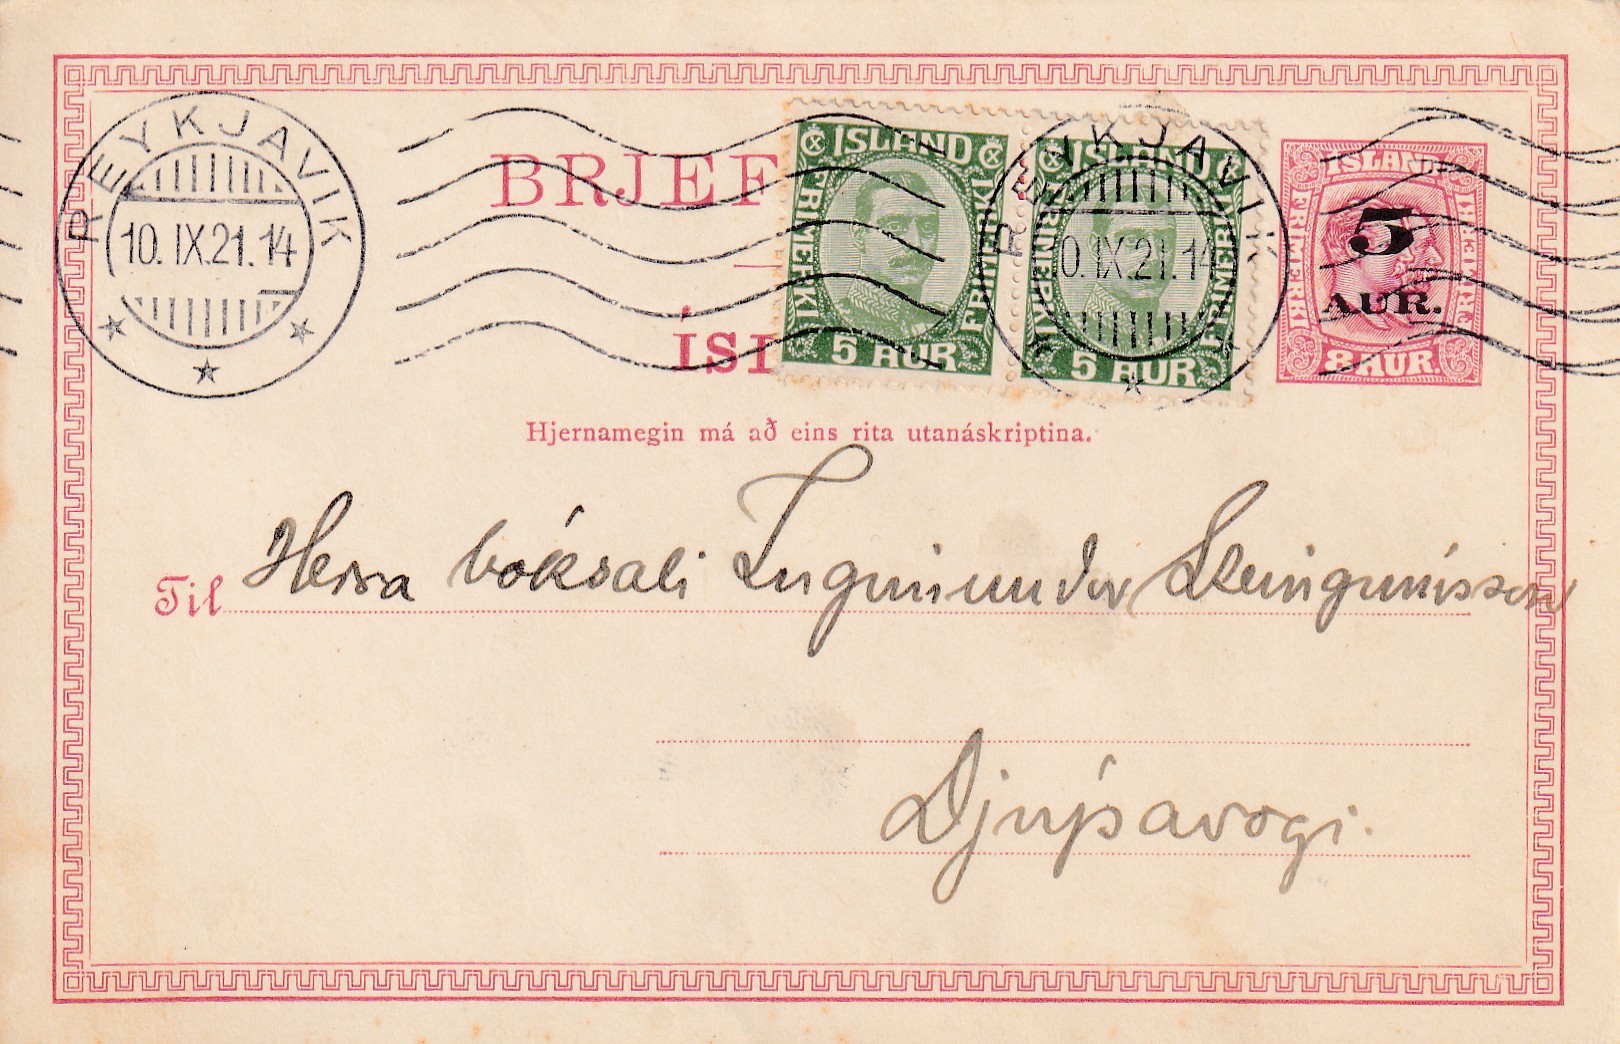 REYKJAVIK
10.IX.21.14
BRJEF
ÍSL
ISLAND
FRIMERKI
FRIMERKI
5 AUR
ISLAND
FRIMERKI
5 AUR
REYKJAVIK
10.IX.21.14
ISLAND
FRIMERKI
FRIMERKI
5
AUR.
8 AUR.
Hjernamegin má að eins rita utanáskriptina.
Til Herra bóksali Ingimundur Steingrímsson
Djúpavogi.